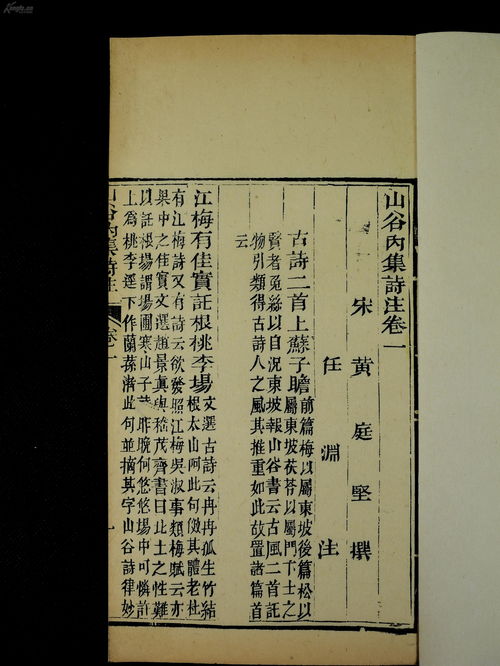 山谷內集詩注卷一
宋 黃 庭 堅 撰
任 淵 注
古詩二首上蘇子瞻
前篇梅以屬東坡後篇松以
屬東坡茯苓以屬門下士之
賢者兔絲以自況東坡報山谷書云古風二首託
物引類得古詩人之風其推重如此故置諸篇首
云
江梅有佳實託根桃李場
文選古詩云冉冉孤生竹結
根太山阿此句倣其體老杜
有江梅詩又有詩云欲發照江梅吳淑事類梅賦云亦
果中之佳實文選趙景真與嵇茂齊書曰北土之性難
以託根場謂場圃寒山子詩昨晚何悠悠場中可憐許
上為桃李徑下作蘭蓀渚此句並摘其字山谷詩律妙
山谷內集詩注 卷一
一
Kongfz.cn